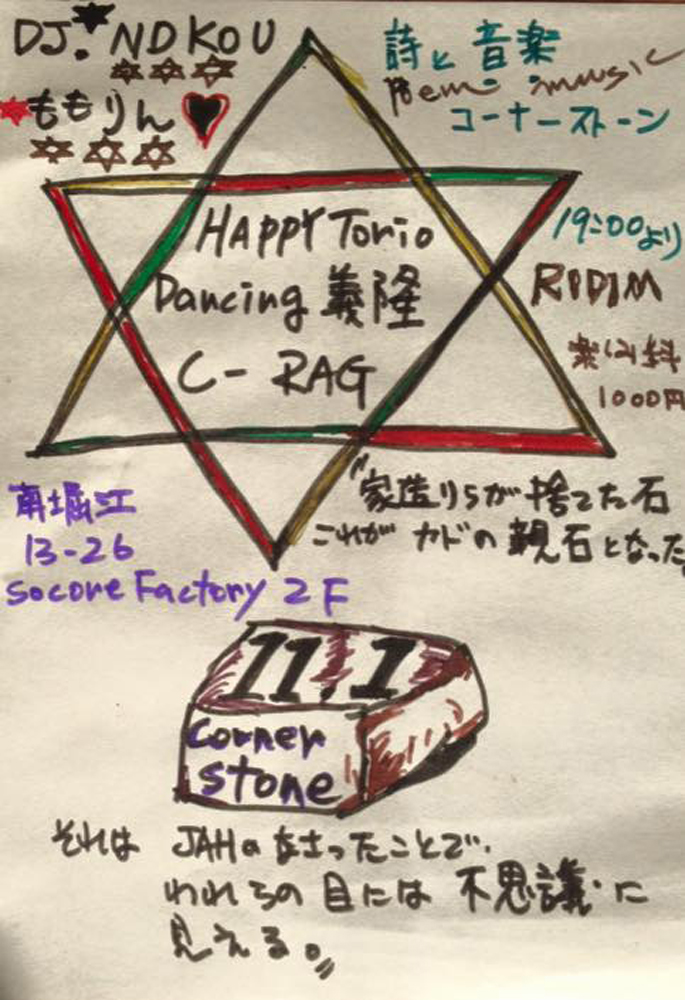 DJ. NDKOU
ももりん
詩と音楽
Poem music
コーナーストーン
HAPPY Torio
Dancing 義隆
C-RAG
19:00より
RIDIM
楽しみ料
1000円
南堀江
13-26
Socore Factory 2F
"家造りらが捨てた石
これが カドの親石となった。
11.1
Corner
Stone
それは JAHのなさったことで、
われらの目には 不思議に
見える。"